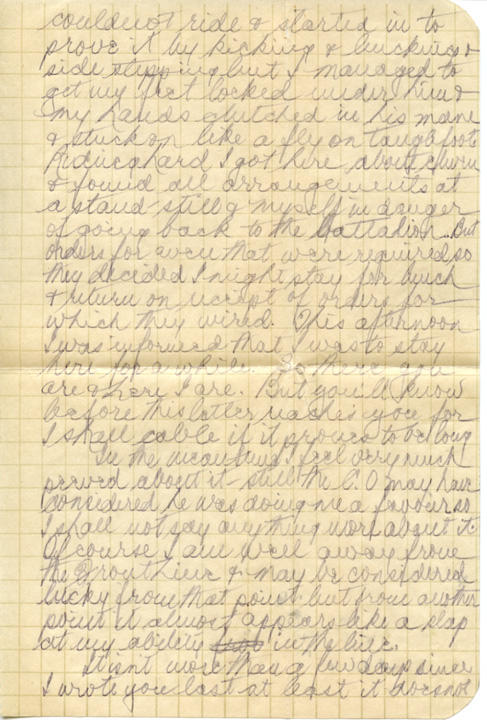 could not ride & started in to
prove it by kicking & bucking &
side stepping but I managed to
get my feet locked under him &
my hands clutched in his mane
& stuck on like a fly on tanglefoot
Riding hard I got here about
& found all arrangements at
a stand-still & myself in danger
of going back to the battalion. But
orders for even that were required so
they decided I might stay for lunch
& return on receipt of orders for
which they wired. This afternoon
I was informed that I was to stay
here for a while. So there you
are & here I are. But you'll know
before this letter reaches you for
I shall cable if it proves to be long
In the meantime I feel very much
peeved about it - still the C.O may have
considered he was doing me a favour so
I shall not say anything more about it.
Of course I am well away from
the Front line & may be considered
lucky from that point but from another
point it almost appears like a slap
at my ability in the line.
It isnt more than a few days since
I wrote you last at least it does not